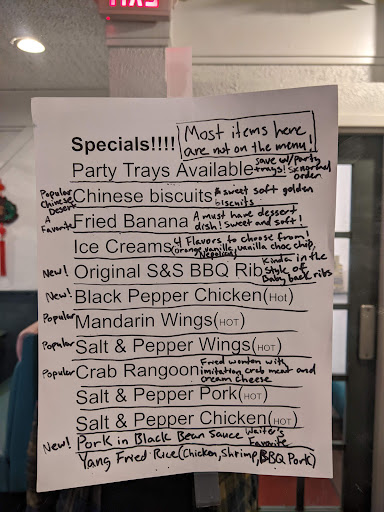 Specials!!!!
Most items here
are not on the menu!
Party Trays Available
save w/ party
trays! 5x normal
order
Popular
Chinese
Desert
Chinese biscuits
sweet soft golden
biscuits
A
Favorite
Fried Banana
A must have dessert
dish! Sweet and soft!
Ice Creams
4 Flavors to choose from!
(orange vanille, vanilla choc chip,
New! Original S&S BBQ Rib
Kinda in the
style of
Baby back ribs
New! Black Pepper Chicken(Hot)
Popular Mandarin Wings(HOT)
Popular Salt & Pepper Wings(HOT)
Popular Crab Rangoon
Fried wonton with
imitation crab meat and
cream cheese
Salt & Pepper Pork(HOT)
Salt & Pepper Chicken(HOT)
New! Pork in Black Bean Sauce
Waiter's
Favorite
Yang Fried Rice (Chicken, Shrimp, BBQ Pork)